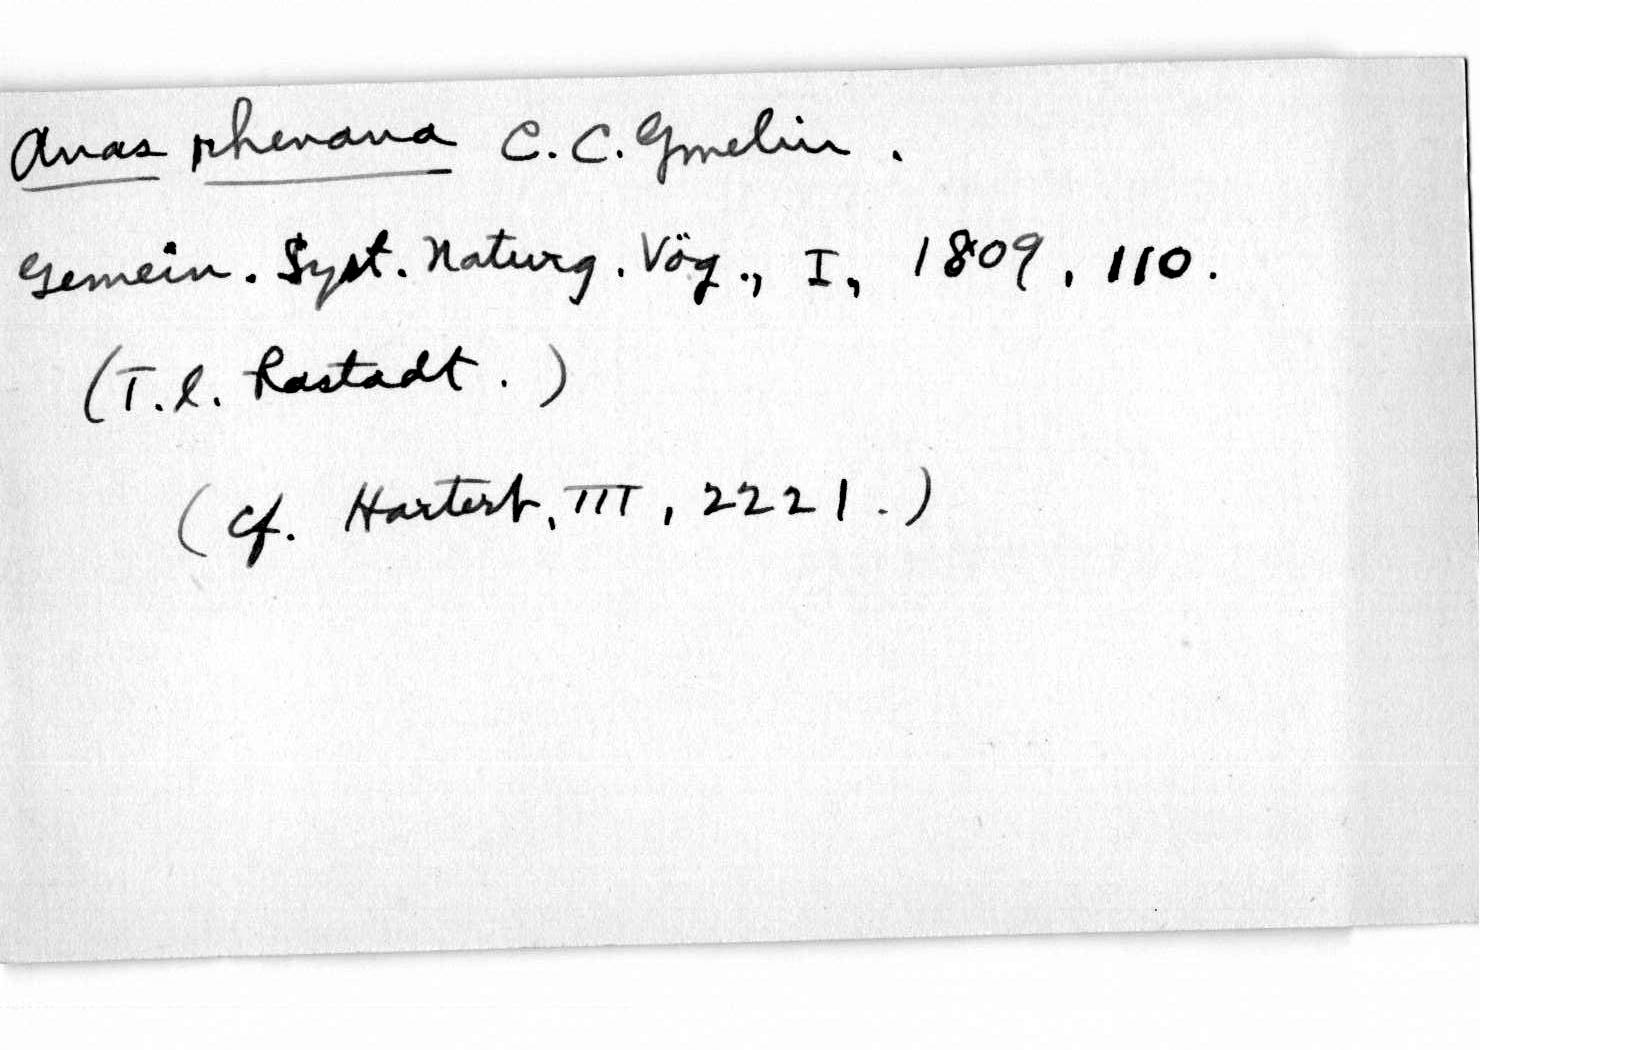 Anas rhenana C. C. Gmelin.
Gemein. Syst. Naturg. Vög., I, 1809, 110.
(T.l. Rastadt.)
(cf. Hartert, III, 2221.)